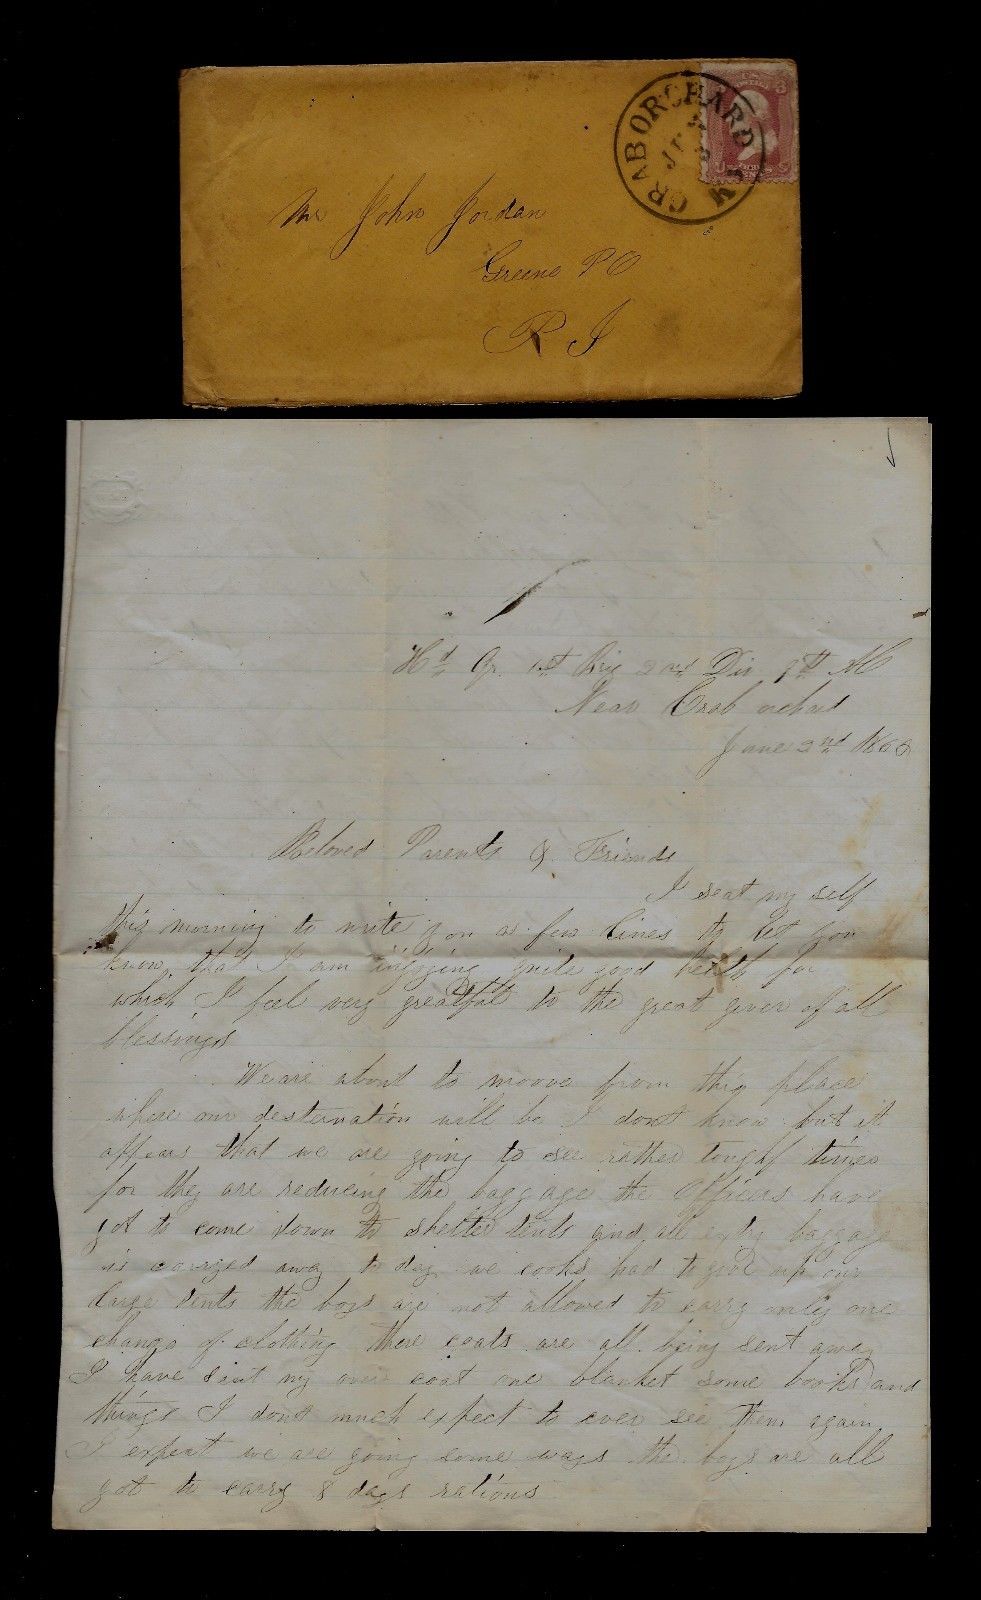 CRAB ORCHARD KY
Mr John Jordan
Greene P O
R I
Hd Qr. 1st Brig 2nd Div 9th AC
Near Crab orchard
June 2nd 1863
Beloved Parents & Friends
I seat my self
this morning to write you a few lines to let you
know that I am injoying quite good health for
which I feel very greatful to the great giver of all
blessings
We are about to moove from this place
where our desternation will be I dont know but it
appears that we are going to see rather tough times
for they are reducing the baggage the Officers have
got to come down to shelter tents and all extry baggage
is carryed away to day we cooks had to give up our
large tents the boys are not allowed to carry only one
change of clothing there coats are all being sent away
I have sent my over coat one blanket some books and
things I dont much expect to ever see them again
I expect we are going some ways the boys are all
got to carry 8 days rations